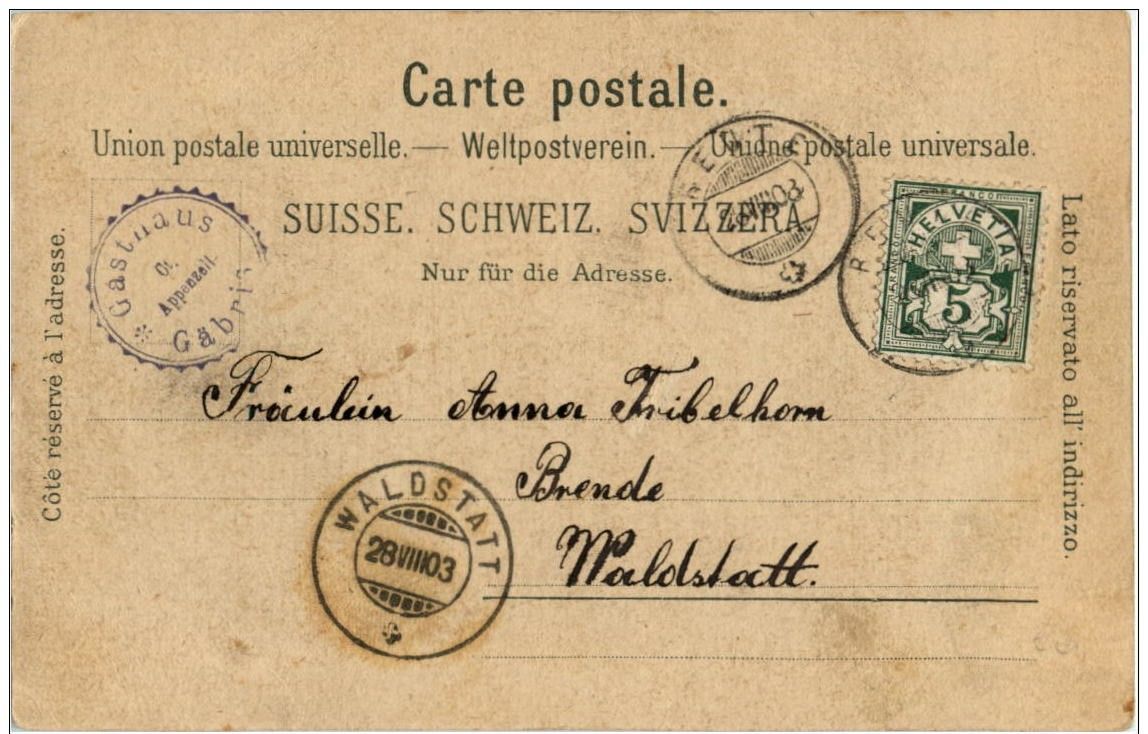 Carte postale.
Union postale universelle. — Weltpostverein. — Unione postale universale.
SUISSE. SCHWEIZ. SVIZZERA.
Nur für die Adresse.
Côté réservé à l'adresse.
Lato riservato all' indirizzo.
Gasthaus
Ct. Appenzell.
Gäbris
28 VIII 03
FRANCO
HELVETIA
5
Fräulein Anna Tribelhorn
Brende
Waldstatt.
WALDSTATT
28 VIII 03